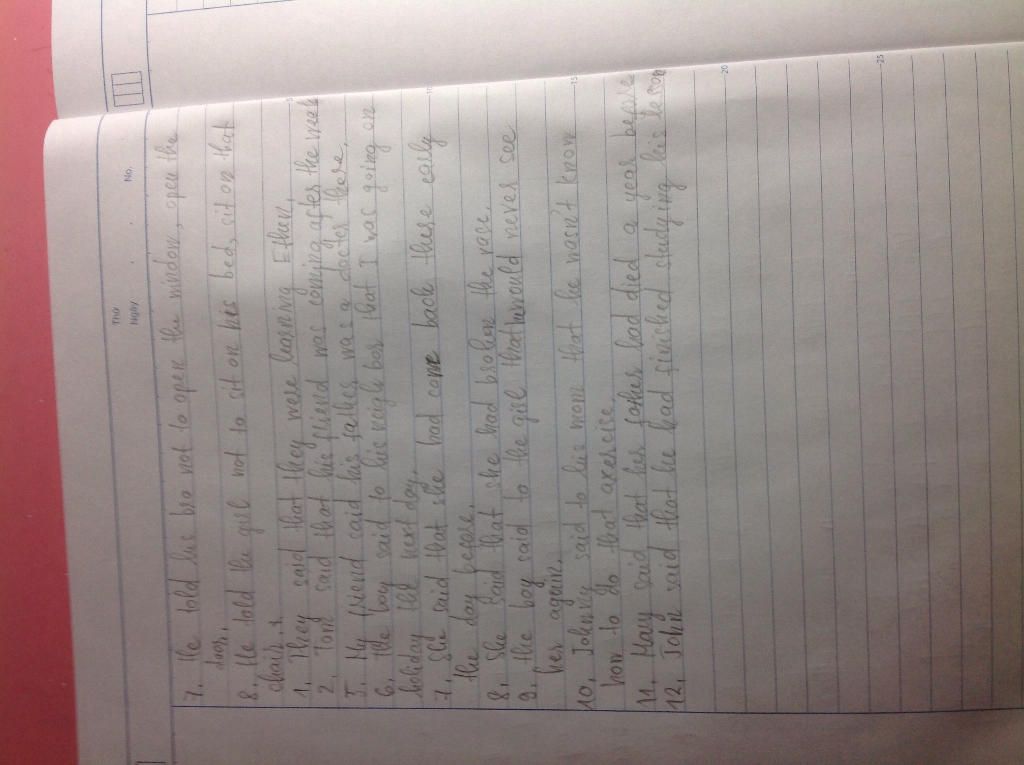 Thứ
Ngày . . No.
7. He told his bro not to open the window, open the
door.
8. He told the girl not to sit on his bed, sit on that
chair.
1. They said that they were learning E then.
2. Tom said that his friend was coming after the week
5. My friend said his father was a doctor there.
6. the boy said to his neigh bor that I was going on
holiday the next day.
7. She said that she had come back there early
the day before.
8. She said that she had broken the vase.
9. the boy said to the girl that would never see
her again.
10. Johnny said to his mom that he wasn't know
how to do that axercise.
11. Mary said that her father had died a year before
12. John said that he had finished studying his lesson
5
10
15
20
25